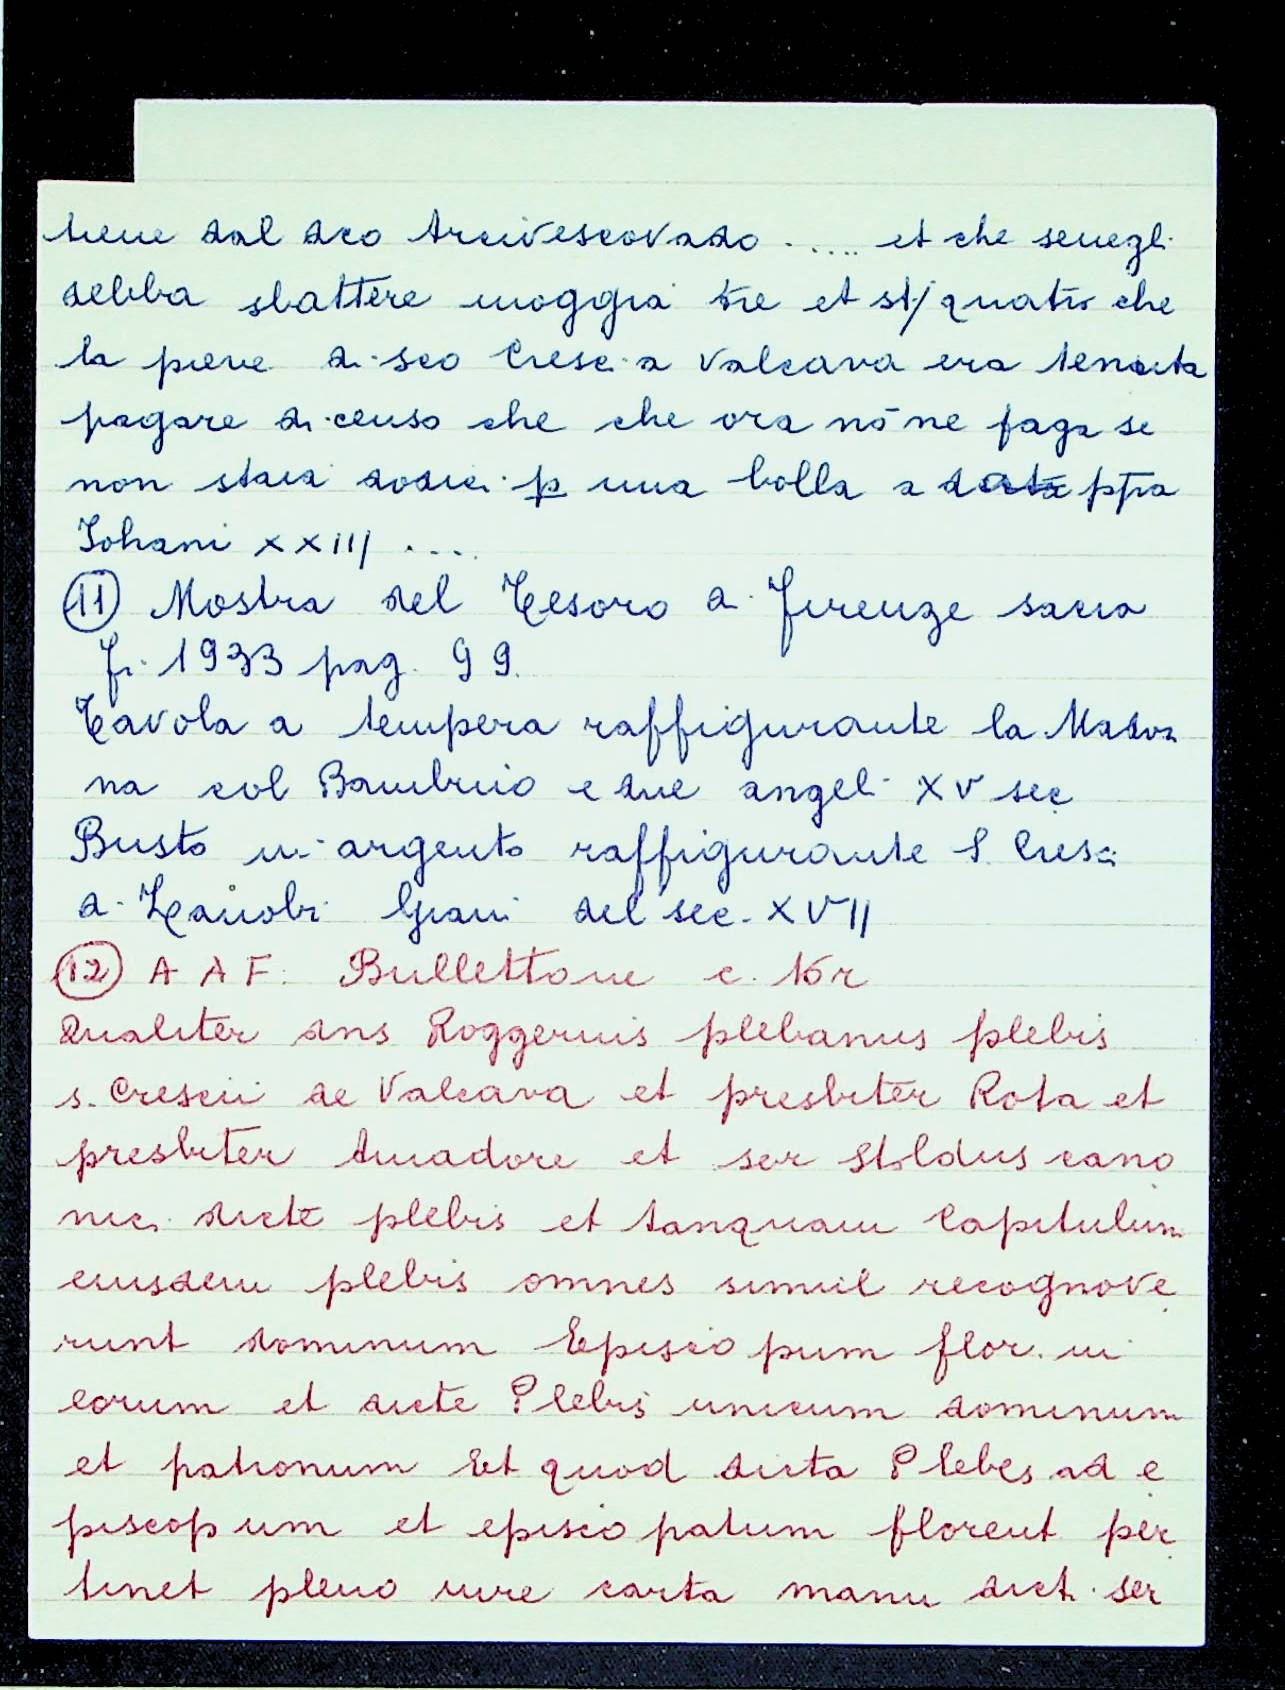 tiene dal dco Arcivescovado ..... et che senegli
debba sbattere moggia tre et st/ quatro che
la pieve di sco Cresci a Valcava era tenuta
pagare di censo che che ora nō ne paga se
non staia dodici p una bolla a data ppia
Johani XXIII ....
(11) Mostra del Tesoro di Firenze sacra
Fi. 1933 pag. 99.
Tavola a tempera raffigurante la Mado
na col Bambino e due angeli XV sec
Busto in argento raffigurante S. Cresci
di Zanobi Grani del sec. XVII
(12) A A F. Bullettone c. 16r
Qualiter dns Roggerius plebanus plebis
s. Crescii de Valcava et presbiter Rota et
presbiter Amadore et ser Stoldus cano
nici dicte plebis et tanquam Capitulum
eiusdem plebis omnes simul recognove
runt dominum Episcopum flor. in
eorum et dicte Plebis unicum dominum
et patronum Et quod dicta Plebes ad e
piscopum et episcopatum florent per
tinet pleno iure carta manu dict. ser